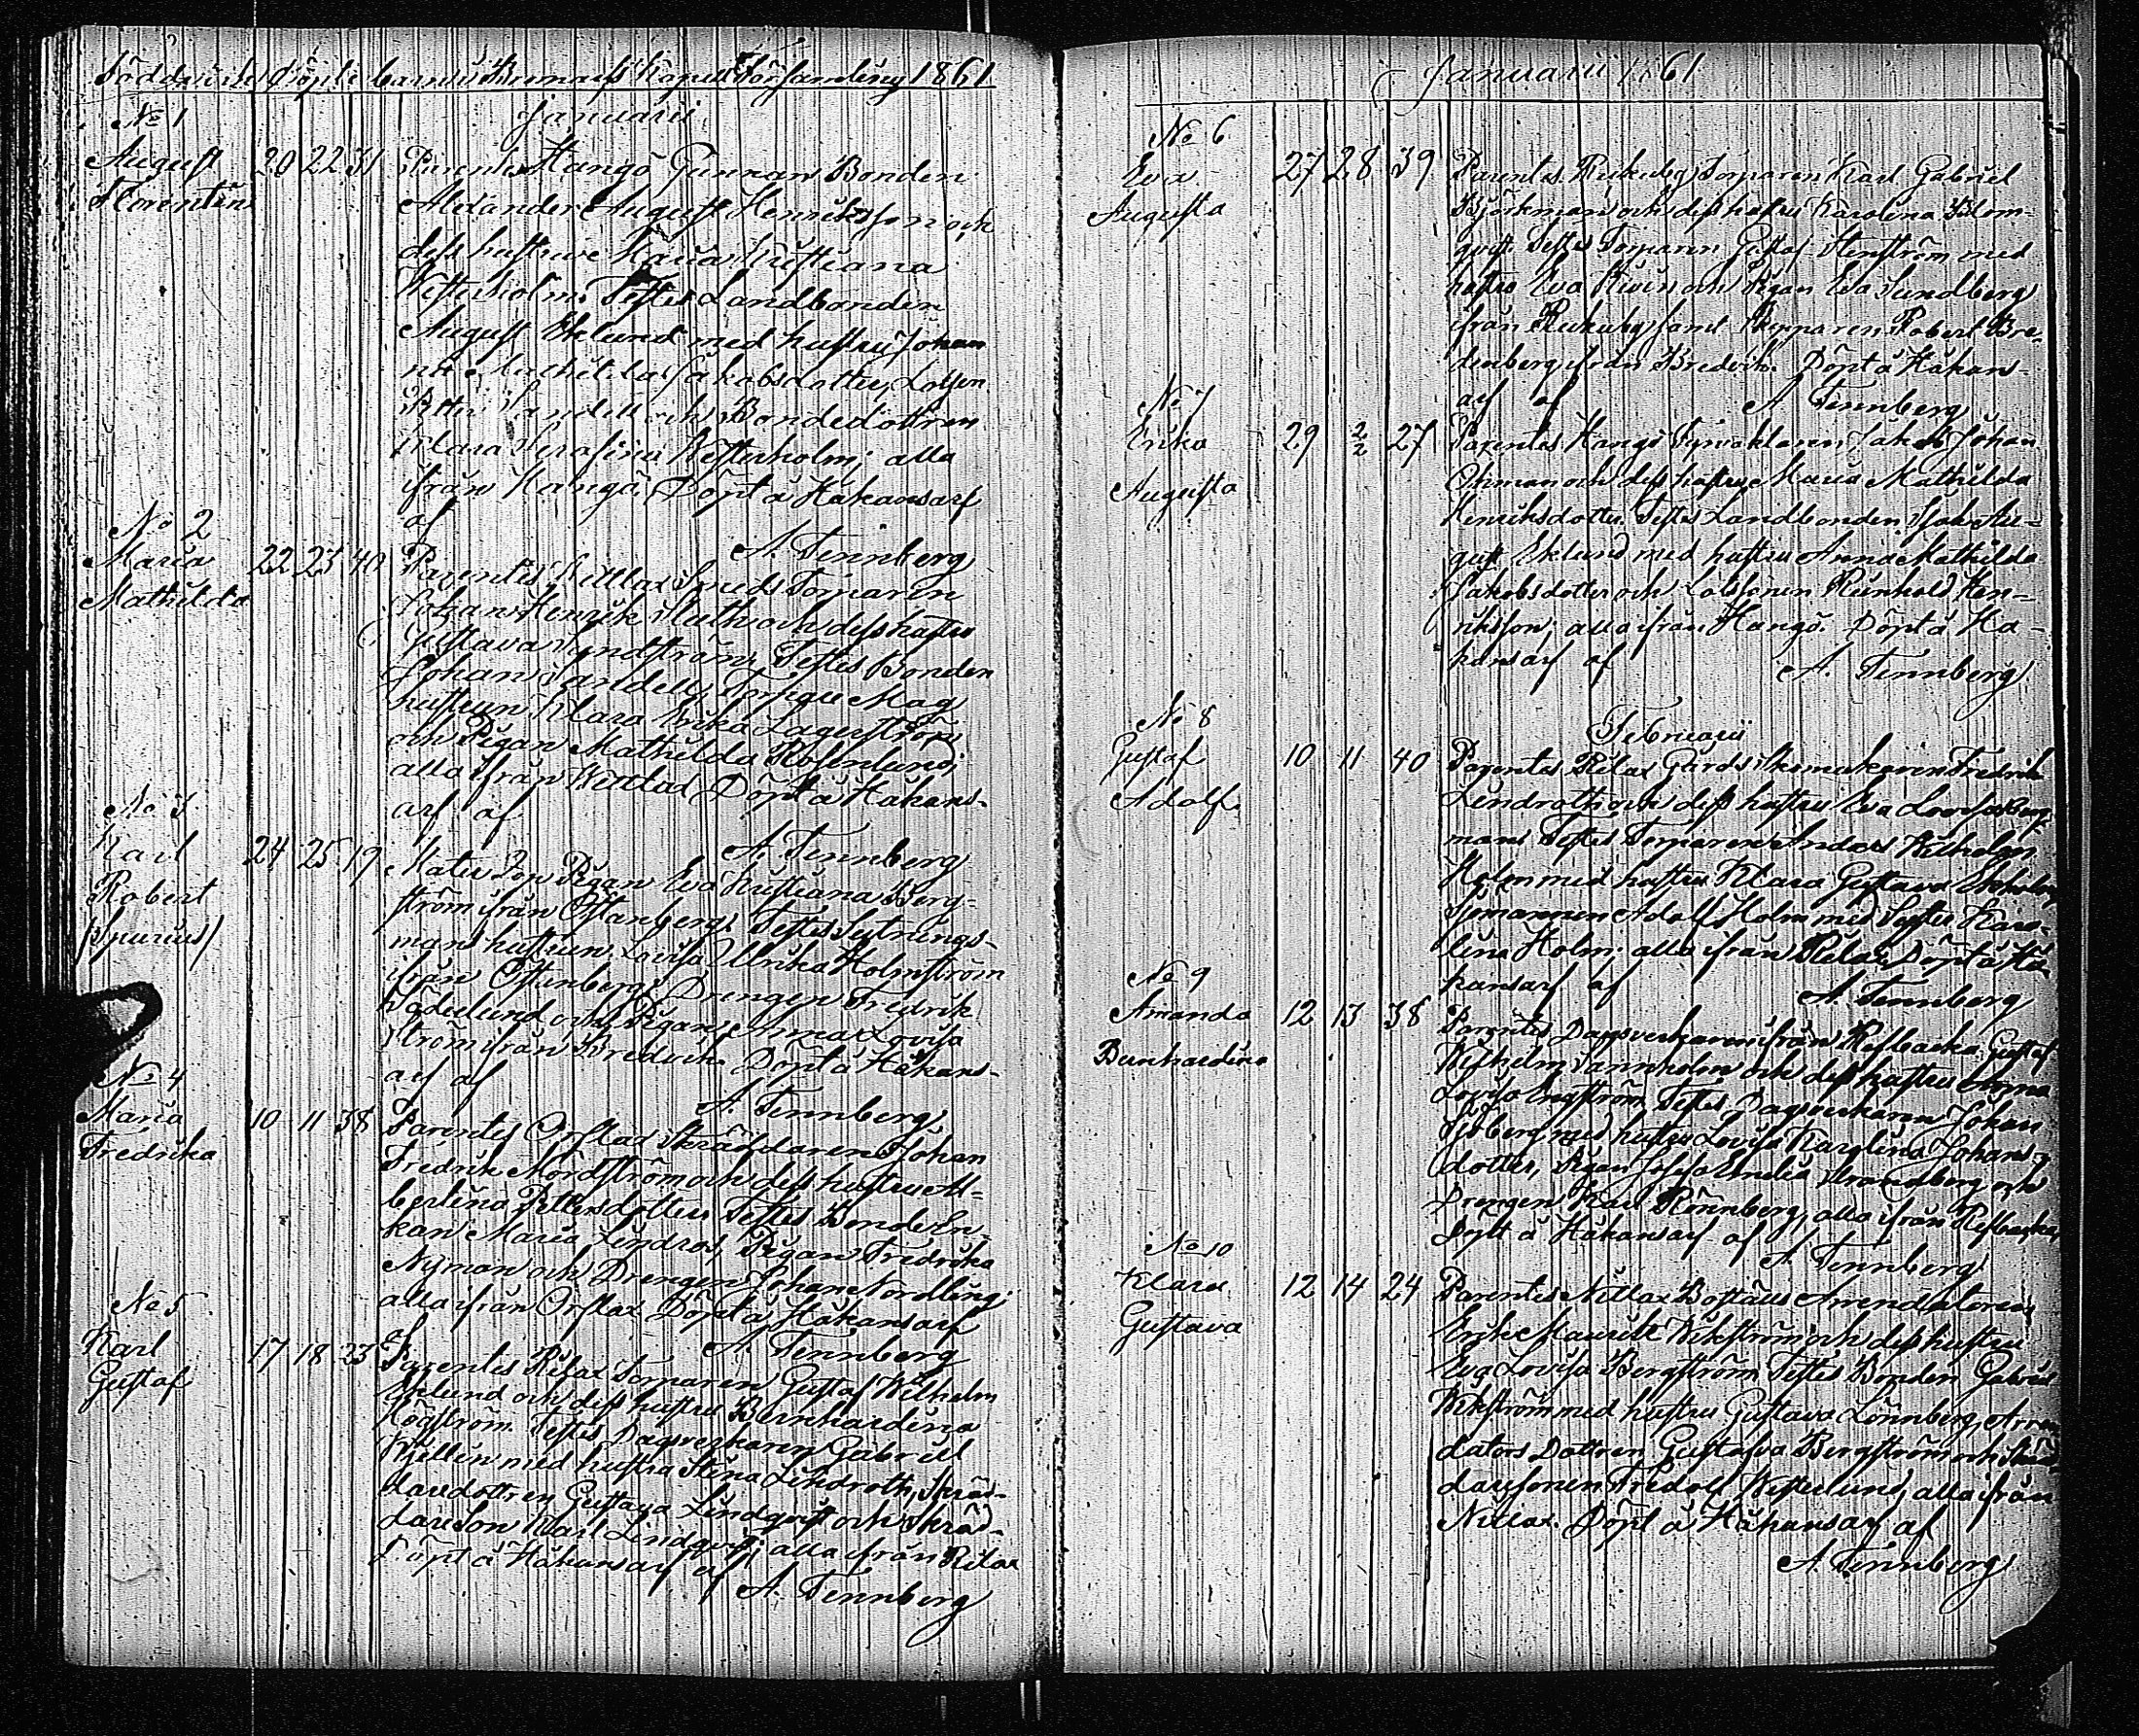 Födde och Döpte barn i Kapell Församling 1861
Januarii
No 1
August 20 22 31 Parentes Hangö Gunnars Bonden
Florentin Alexander August Henriksson och
dess hustru Maria Kristiana
Westerholm. Testes Landbonden
August Eklund med hustru Johan
na Mathilda Jakobsdotter, Lotsen
Petter Sandell och Bondedottren
Klara Serafina Westerholm; alla
ifrån Hangö. Döpt å Håkansarf
af
A. Tennberg
No 2
Maria 22 23 40 Parentes Torparen
Mathilda Johan Henrik och dess hustru
Gustava Lundström, Testes Bonden
Johan Sandell,
hustrun Klara Erika Lagerström
och Pigan Mathilda Rosenlund;
alla ifrån Döpt å Håkans-
arf af
A. Tennberg
No 3
Karl 24 25 19 Mater Pigan Eva Kristiana Berg-
Robert ström ifrån Östanberg. Testes Sytnings-
/Spurius/ mans hustrun Lovisa Ulrika Holmström
ifrån Östanberg, Drengen Fredrik
Söderlund och Pigan Anna Lovisa
ström ifrån Bredvik. Döpt å Håkans-
arf af
A. Tennberg
No 4
Maria 10 11 38 Parentes Orslax Skräddaren Johan
Fredrika Fredrik Nordström och dess hustru Al-
bertina Pettersdotter Testes Bonde En-
kan Maria Lindros, Pigan Fredrika
Nyman och Drengen Johan Nordling;
alla ifrån Orslax Döpt å Håkansarf
af
A. Tennberg
No 5
Karl 17 18 23 Parentes Rilax Torparen Gustaf Wilhelm
Gustaf Eklund och dess hustru Bernhardina
Högström. Testes Dagsverkaren Gabriel
Kjellin med hustru Stina Lindroth, Skräd-
daredottren Gustava Lindqvist och Skräd-
dareson Karl Lindqvist; alla ifrån Rilax
Döpt å Håkansarf af
A. Tennberg
Januarii 1861
No 6
Eva 27 28 39 Parentes Torparen Karl Gabriel
Augusta Björkman och dess hustru Karolina Blom-
qvist. Testes Torparen Gustaf Stenström med
hustru Eva och Pigan Eva Sundberg
ifrån samt Robert Bre-
denberg ifrån Bredvik. Döpt å Håkans-
arf af A. Tennberg
No 7
Erika 29 2/2 27 Parentes Hangö Jakob Johan
Augusta Öhman och dess hustru Maria Mathilda
Henriksdotter. Testes Landbonden Isak Au-
gust Eklund med hustru Anna Mathilda
Jakobsdotter och Reinhold Hen-
riksson; alla ifrån Hangö. Döpt å Hå-
kansarf af A. Tennberg
Februarii
No 8
Gustaf 10 11 40 Parentes Rilax Gårds Skomakaren Fredrik
Adolf. Lindroth och dess hustru Eva Lovisa Berg-
man. Testes Torparen Anders Wilhelm
Holm med hustru Klara Gustava Ekholm,
Sjömannen Adolf Holm med Syster Karo-
lina Holm; alla ifrån Rilax Döpt å Hå-
kansarf af A. Tennberg
No 9
Amanda 12 13 38 Parentes Dagsverkaren ifrån Gustaf
Bernhardina Wilhelm Dannholm och dess hustru Anna
Lovisa Engström Testes Dagsverkaren Johan
Sjöberg med hustru Lovisa Karolina Johans-
dotter, Pigan Josefa Emelia Strandberg och
Drengen Karl Rönnberg, alla ifrån
Döpt å Håkansarf af A. Tennberg
No 10
Klara 12 14 24 Parentes Nitlax Boställs Arrendatoren
Gustava Erik Maurits Wikström och dess hustru
Eva Lovisa Bergström Testes Bonden Gabriel
Wikström med hustru Gustava Lönnberg, Arren
dators Dottren Gustafva Bergström och Skräd
daresonen Fredolf Westerlund; alla ifrån
Nitlax. Döpt å Håkansarf af
A. Tennberg